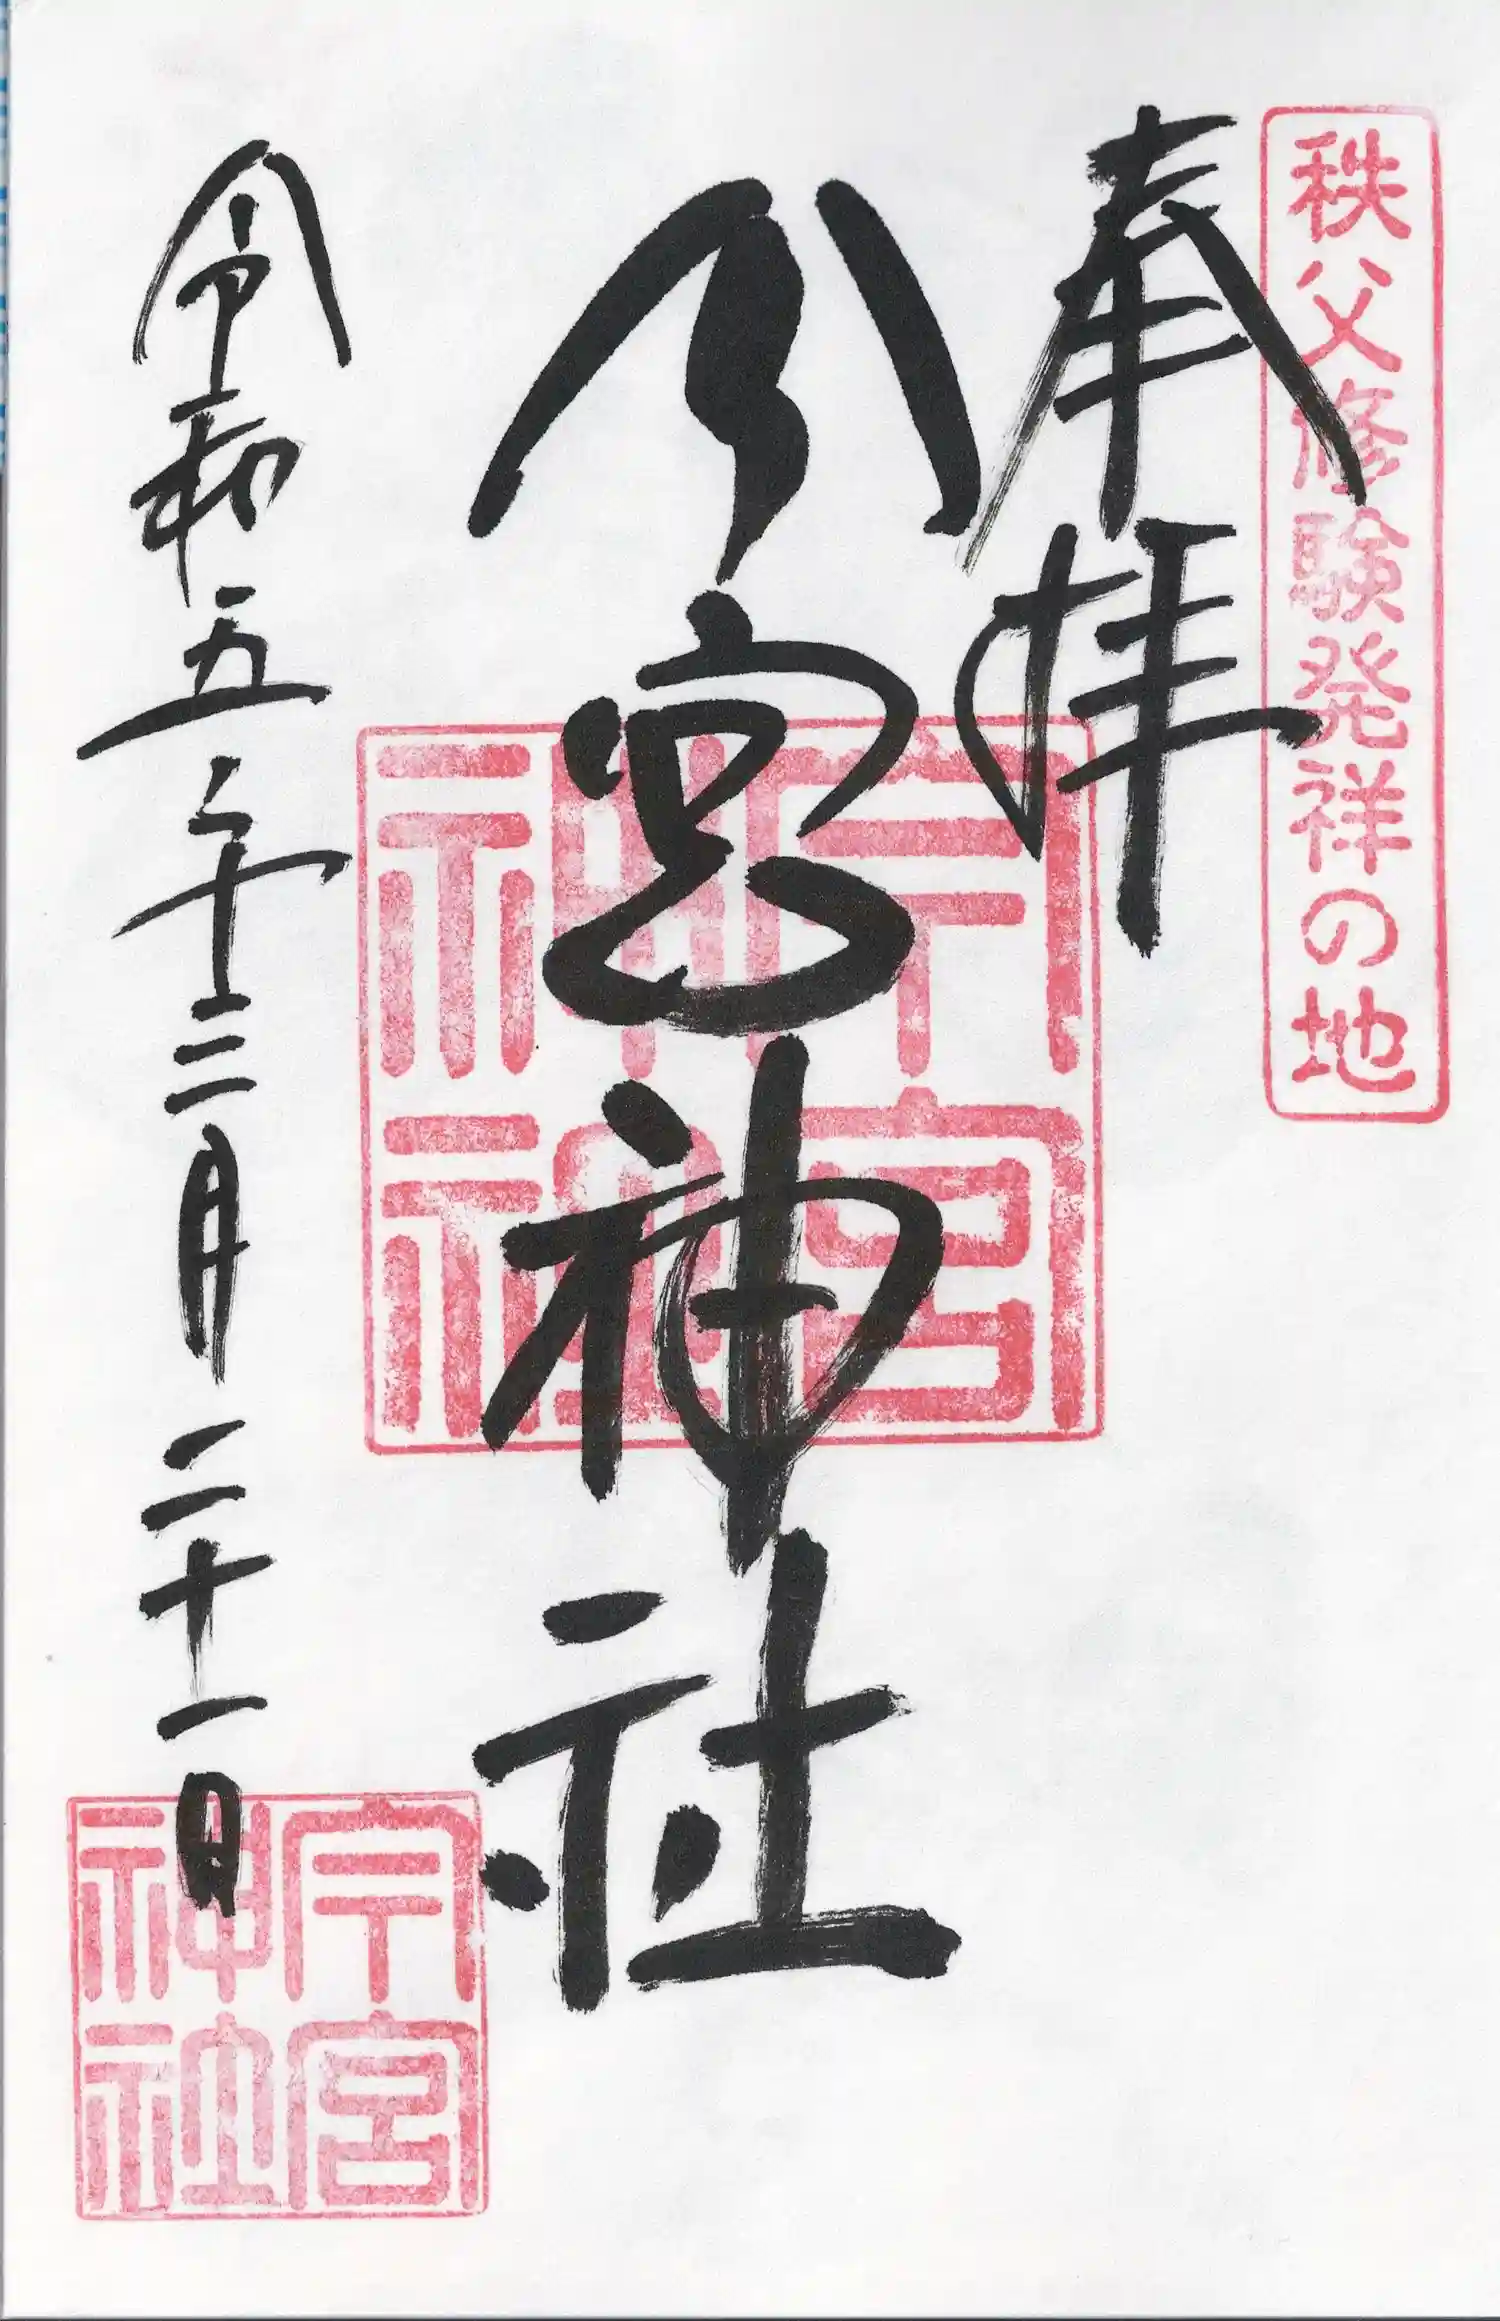 秩父修験発祥の地
奉拝
今宮神社
令和五年三月二十一日
今宮神社
今宮神社